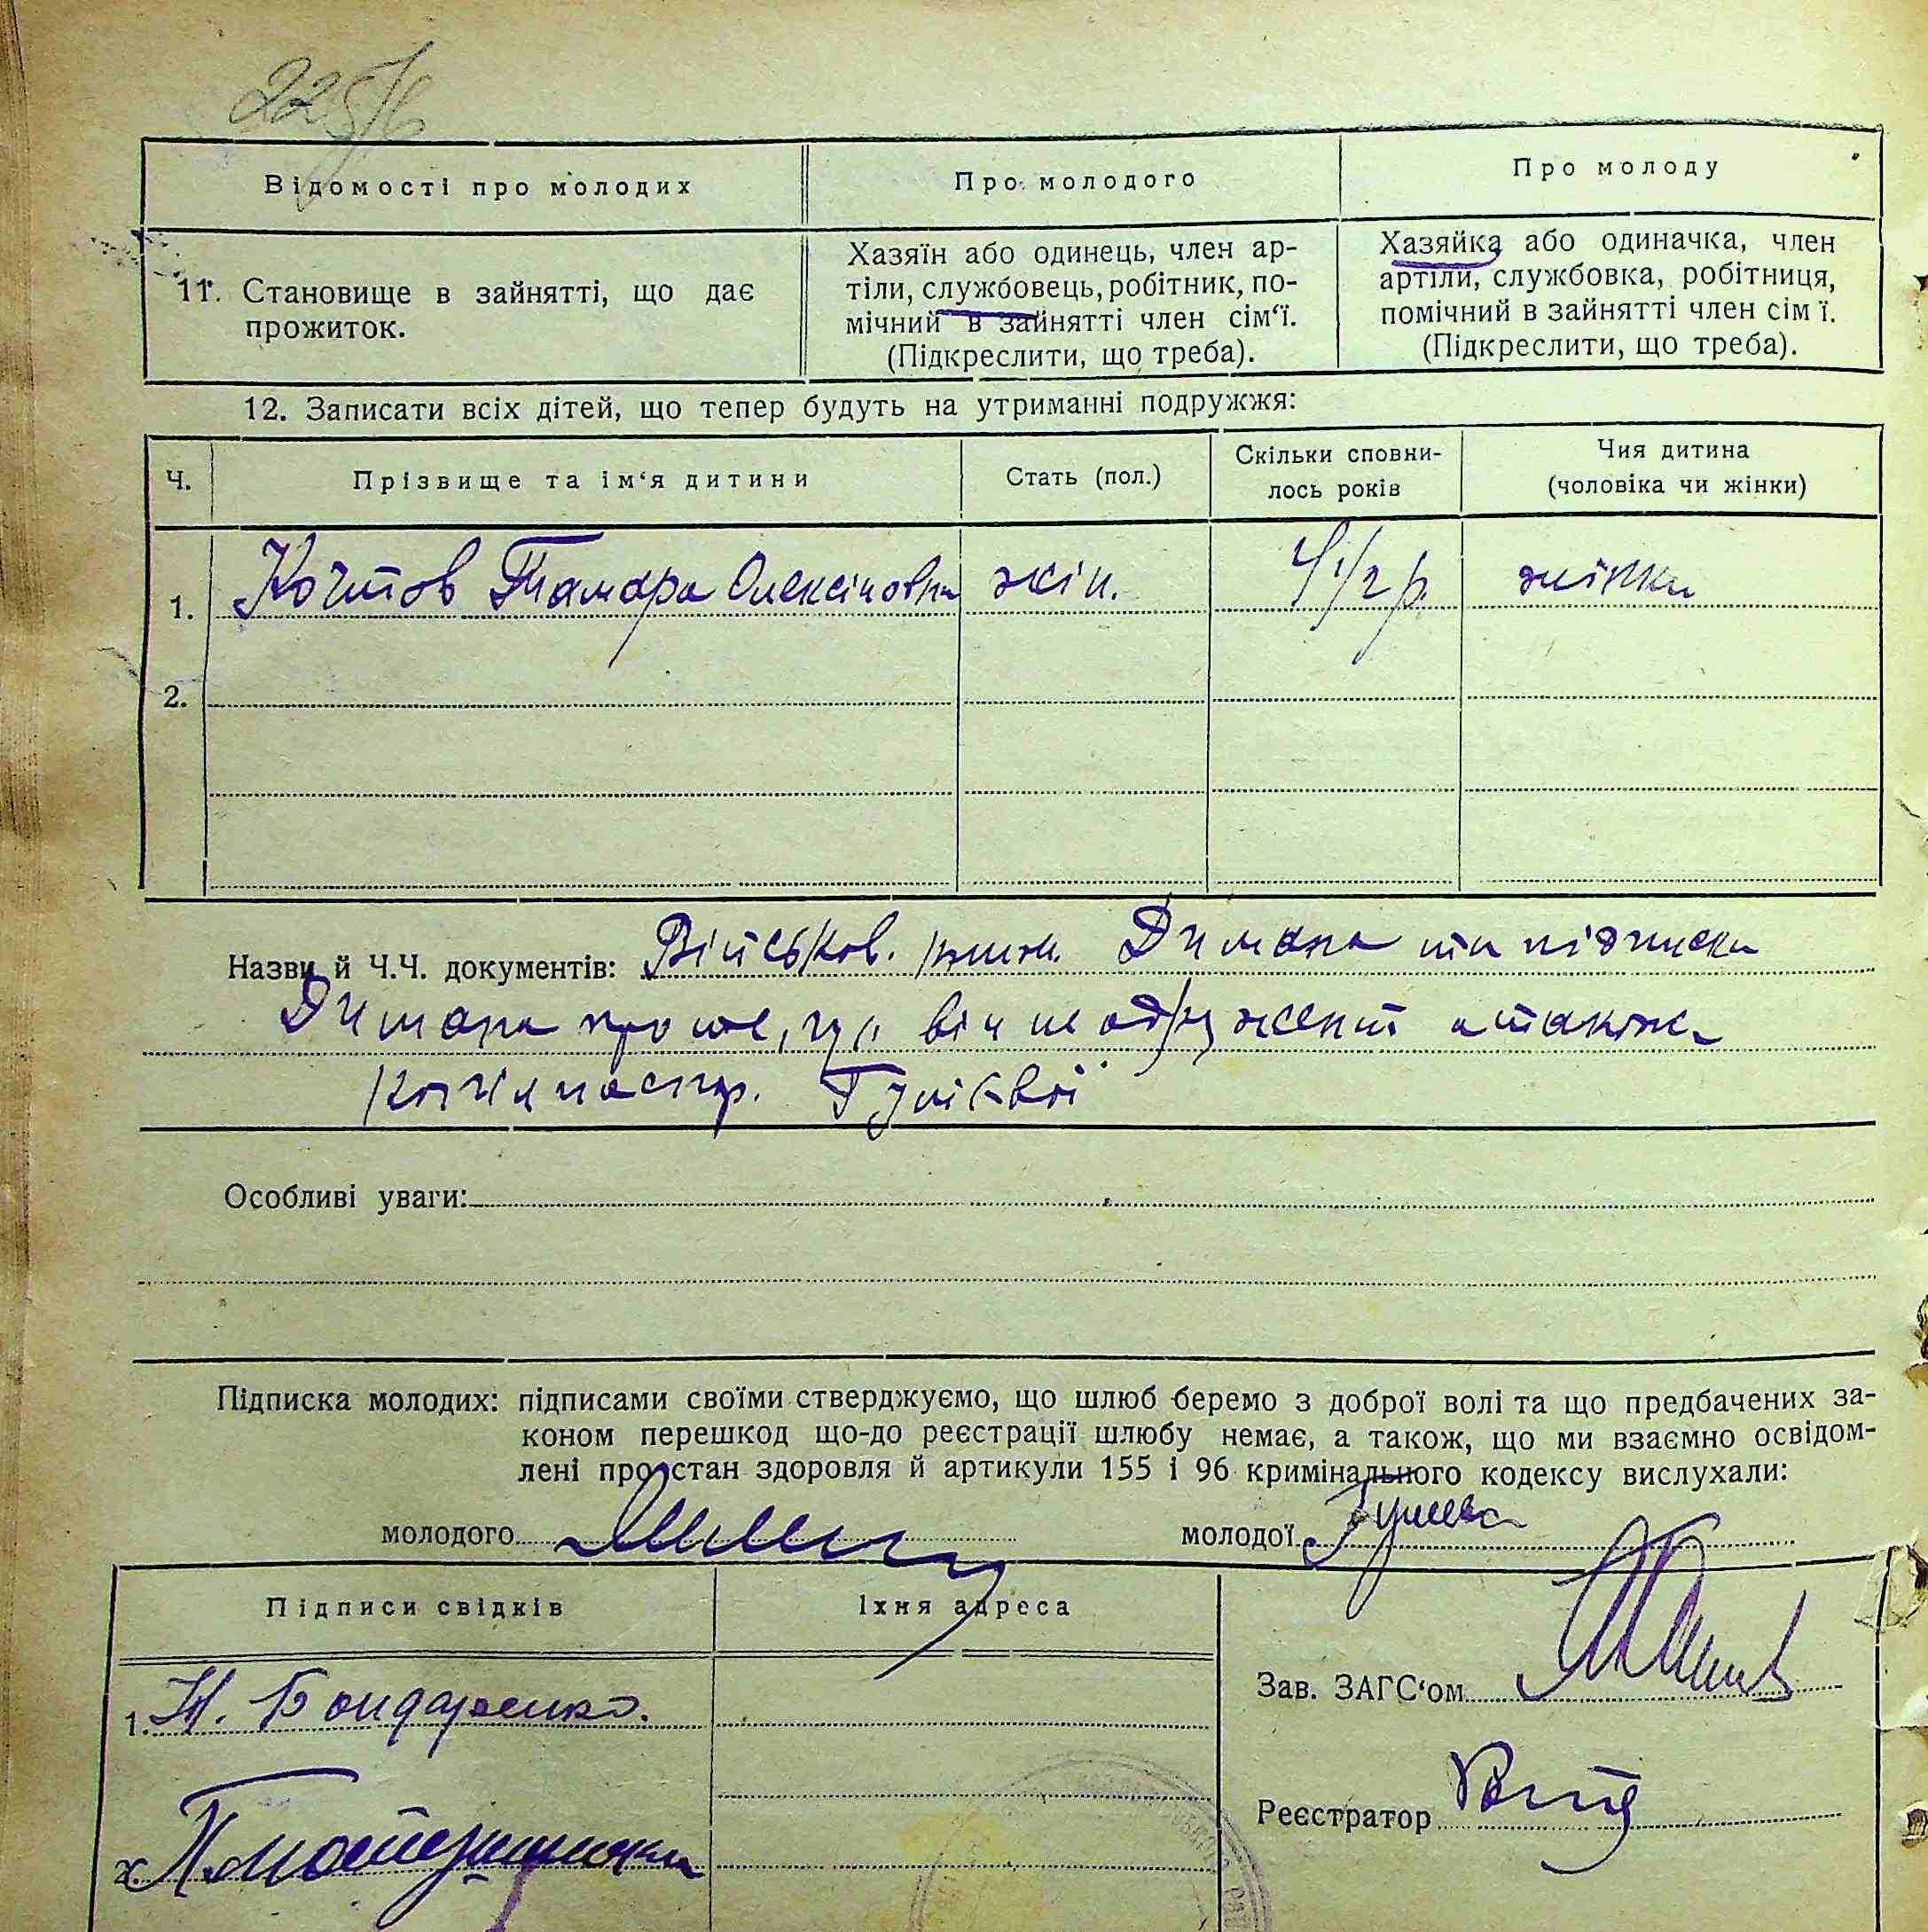 Відомості про молодих
Про молодого
Про молоду
11. Становище в зайнятті, що дає
прожиток.
Хазяїн або одинець, член ар-
тіли, службовець, робітник, по-
мічний в зайнятті член сім‘ї.
(Підкреслити, що треба).
Хазяйка або одиначка, член
артіли, службовка, робітниця,
помічний в зайнятті член сім ї.
(Підкреслити, що треба).
12. Записати всіх дітей, що тепер будуть на утриманні подружжя:
Ч.
Прізвище та ім‘я дитини
Стать (пол.)
Скільки сповни-
лось років
Чия дитина
(чоловіка чи жінки)
1. Тамара жін. 4 1/2 р. жінки
2.
Назви й Ч.Ч. документів: Військов. Димана та підписка
Димана про те, що він не одружений а також
Особливі уваги:
Підписка молодих: підписами своїми стверджуємо, що шлюб беремо з доброї волі та що предбачених за-
коном перешкод що-до реєстрації шлюбу немає, а також, що ми взаємно освідом-
лені про стан здоровля й артикули 155 і 96 кримінального кодексу вислухали:
молодого
молодої
Підписи свідків
Їхня адреса
1. Н. Бондаренко.
Зав. ЗАГС‘ом
Реєстратор
2.